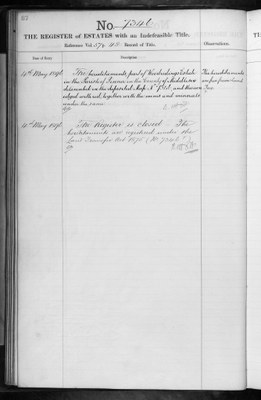 No 7346
THE REGISTER of ESTATES with an Indefeasible Title.
Reference Vol. 874 Record of Title.
Observations.
Date of Entry.
Description
4th May 1898
The hereditaments part of
in the Parish of in the County of Middlesex
delineated on the deposited Map No 7346, and thereon
edged with red, together with the mines and minerals
under the same
The hereditaments
are free from Land
Tax
4th May 1898
The Register is closed The
hereditaments are registered under the
Land Transfer Act 1875 (No